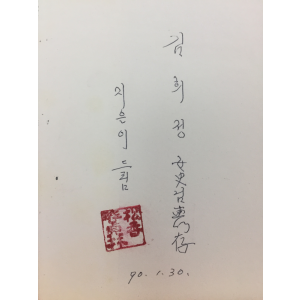 김희정 女史님 惠存
지은이 드림
90. 1. 30.